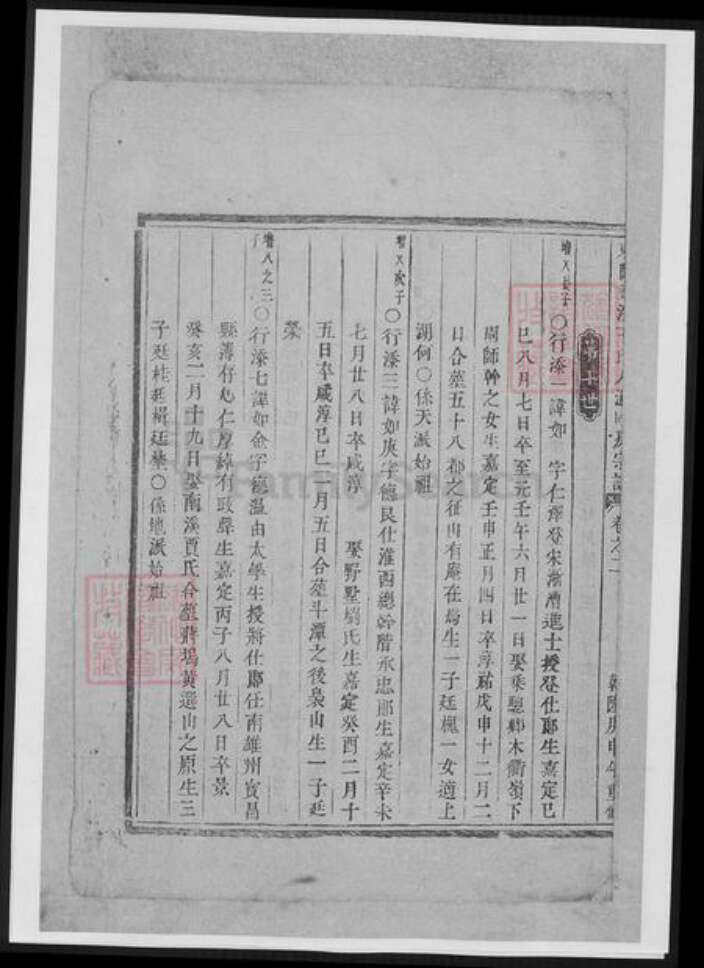 卷之二
民國庚申年重修
第十世
增八長子○行添一諱如 字仁澤登宋漸漕進士授登仕郎生嘉定己
巳八月七日卒至元壬午六月廿一日娶乘驄鄉木衢嶺下
周師幹之女生嘉定壬申正月四日卒淳祐戊申十二月二
日合葬五十八都之征山有庵在焉生一子廷槐一女適上
湖何○係天派始祖
增八次子○行添三諱如庚字德艮仕淮西總幹階承忠郎生嘉定辛未
七月廿八日卒咸淳 娶野墅 氏生嘉定癸酉二月十
五日卒咸淳己巳一月五日合葬斗潭之後梟山生一子廷
榮
增八之三子○行添七諱如金字德溫由太學生授將仕郎任南雄州宜昌
縣簿存心仁厚綽有政聲生嘉定丙子八月廿八日卒景
癸亥二月十九日娶南溪賈氏合葬蔣塢黃遲山之原生三
子廷桂廷 廷 ○係地派始祖